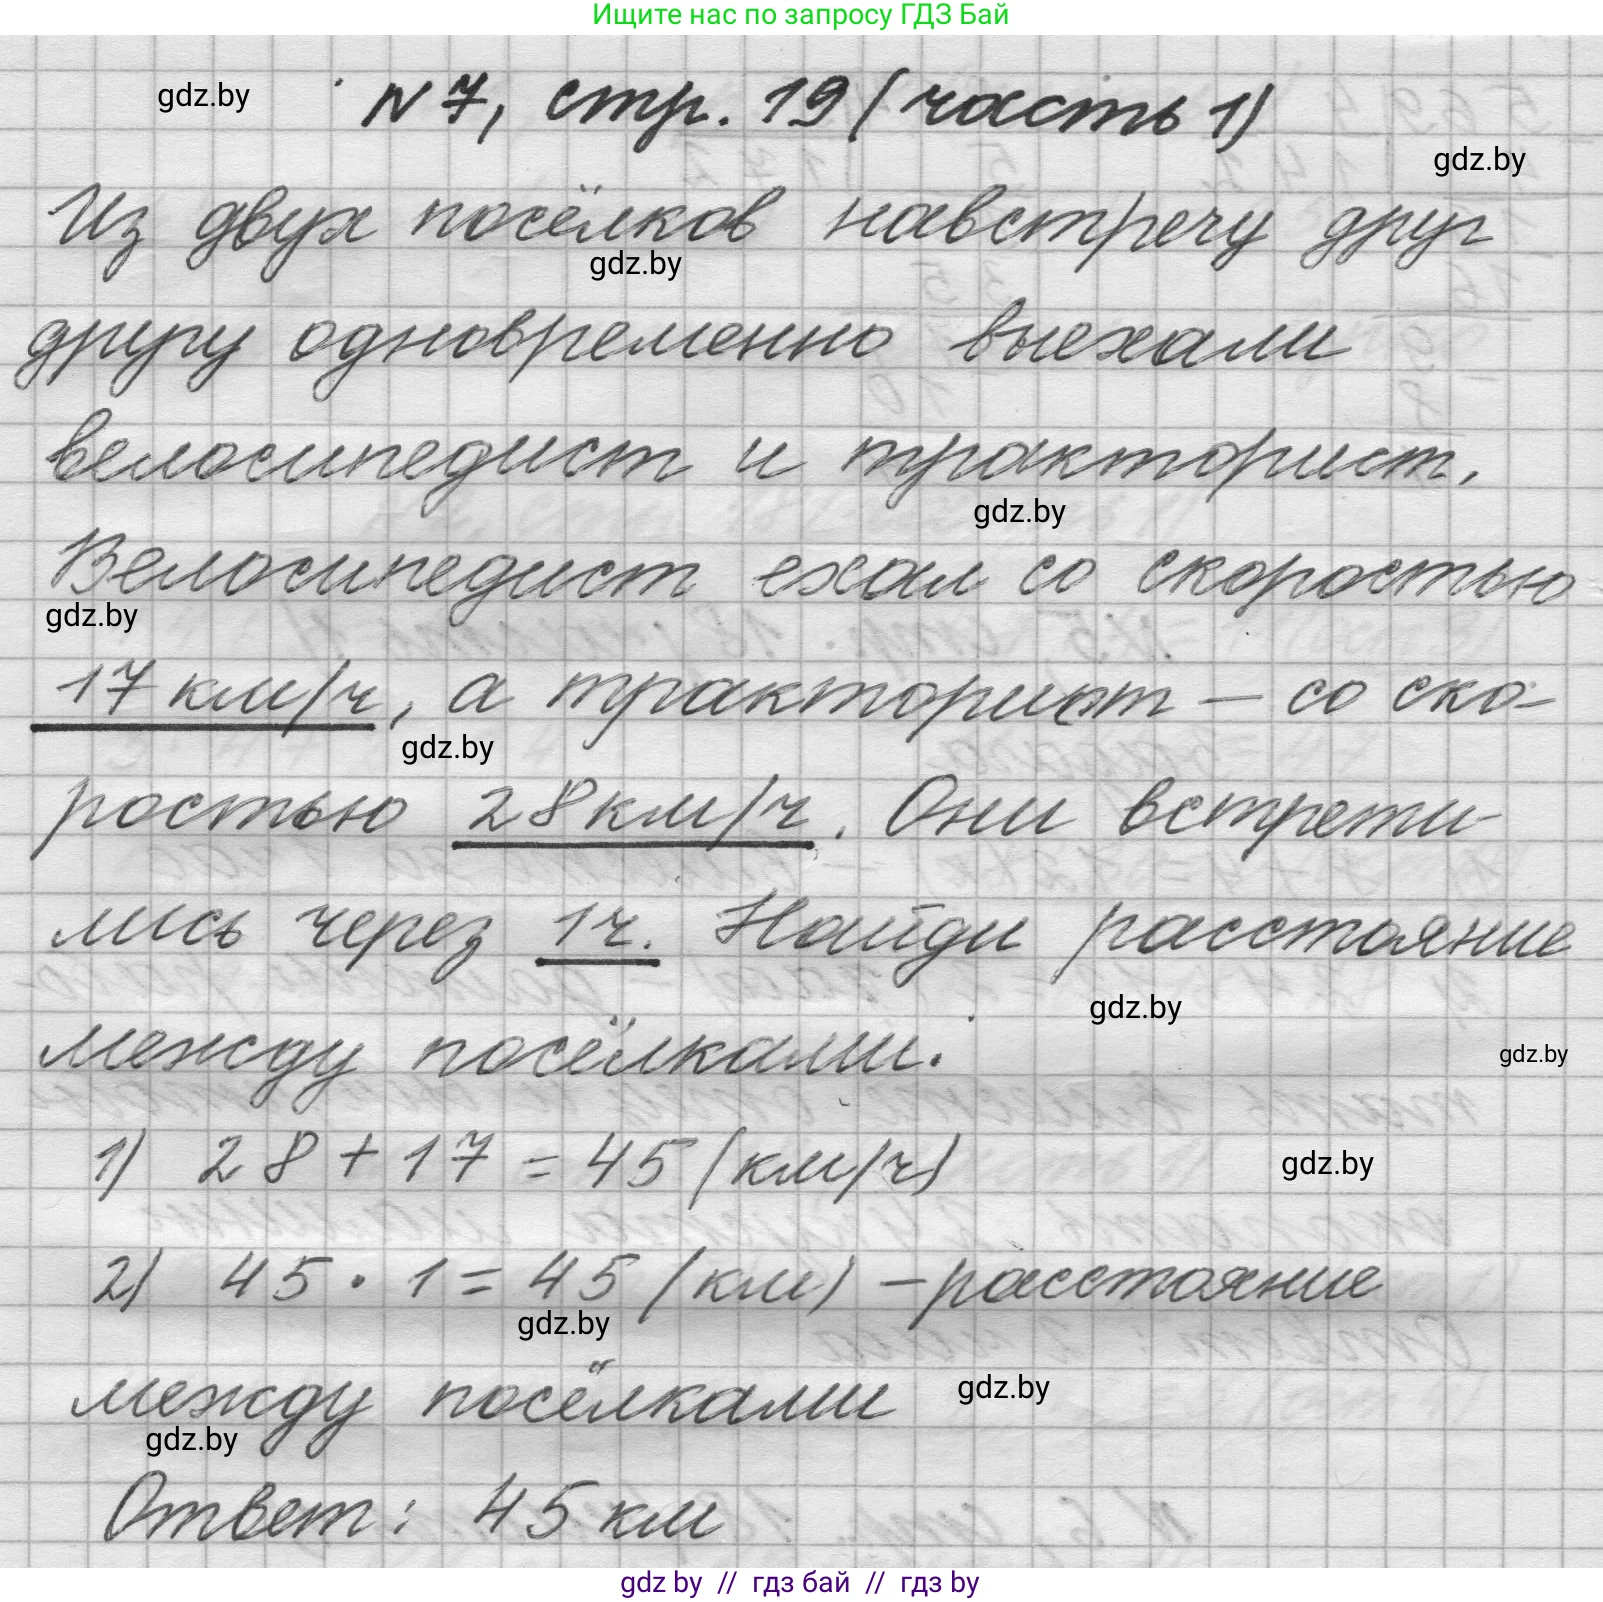 Ищите нас по запросу ГДЗ Бай
gdz.by
N 7, стр. 19 (часть 1)
gdz.by
Из двух посёлков навстречу друг
gdz.by
другу одновременно выехали
велосипедист и тракторист.
gdz.by
Велосипедист ехал со скоростью
gdz.by
17 км/ч, а тракторист – со ско-
gdz.by
ростью 28 км/ч. Они встрети-
лись через 1ч. Найди расстояние
gdz.by
между посёлками.
gdz.by
1) 28 + 17 = 45 (км/ч)
gdz.by
2) 45 · 1 = 45 (км) – расстояние
gdz.by
между посёлками
gdz.by
gdz.by
Ответ: 45 км
gdz by // гдз бай // гдз by